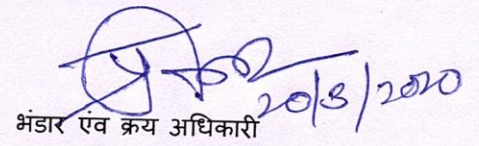 20/3/2020
भंडार एंव क्रय अधिकारी